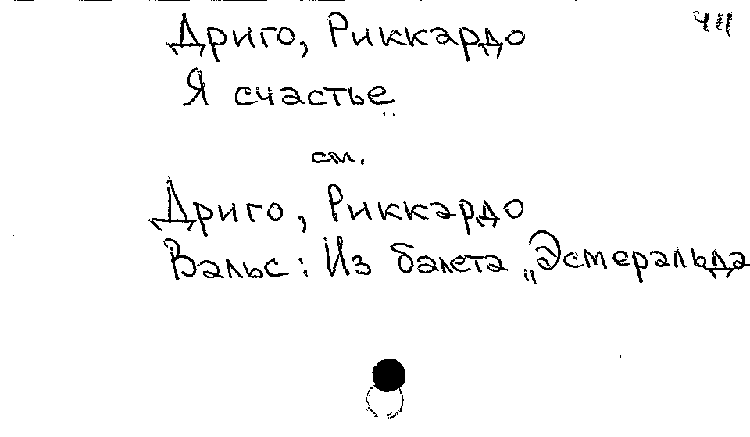 ЧЗ
Дриго, Риккардо
Я счастье
см.
Дриго, Риккардо
Вальс: Из балета „Эсмеральда